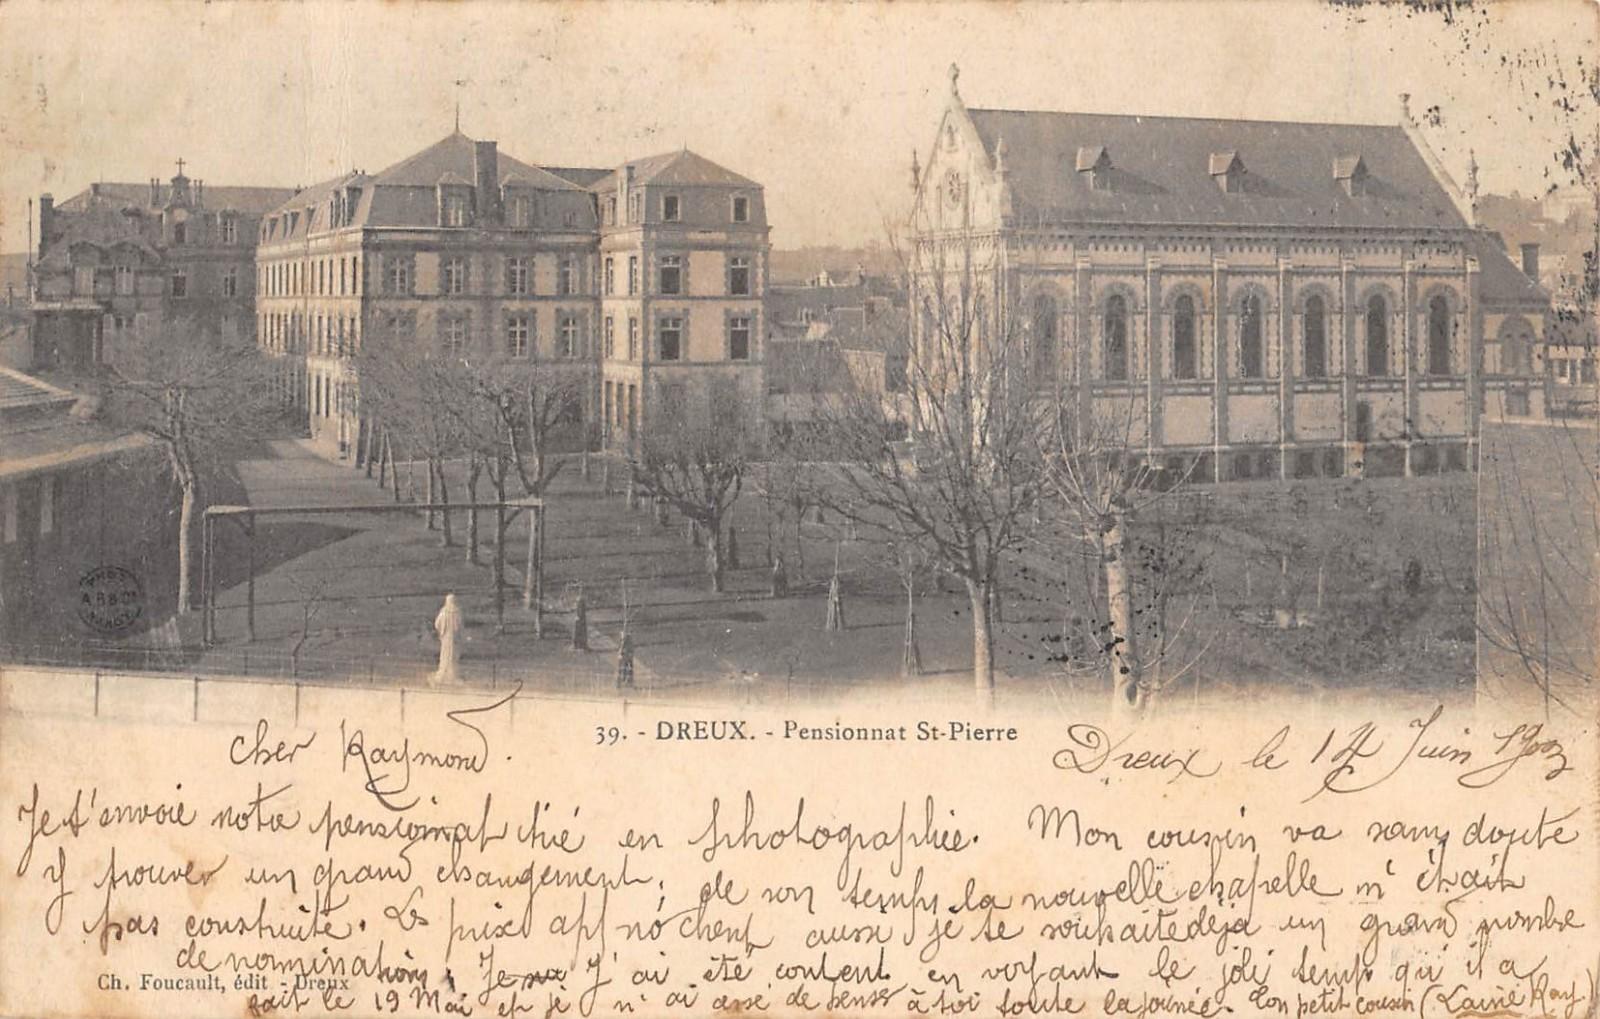 39. - DREUX. - Pensionnat St-Pierre
cher Raymond.
Dreux le 14 Juin 1903
Je t'envoie notre pensionnat tiré en photographie. Mon cousin va sans doute
y trouver un grand changement, de son temps la nouvelle chapelle n'était
pas construite. Les prix approchent aussi je te souhaite déja un grand nombre
de nominations. Je J'ai été content en voyant le joli temps qu'il a
fait le 19 Mai et je n'ai cessé de penser à toi toute la journée. Ton petit cousin (Lainé Ray.)
Ch. Foucault, édit - Dreux